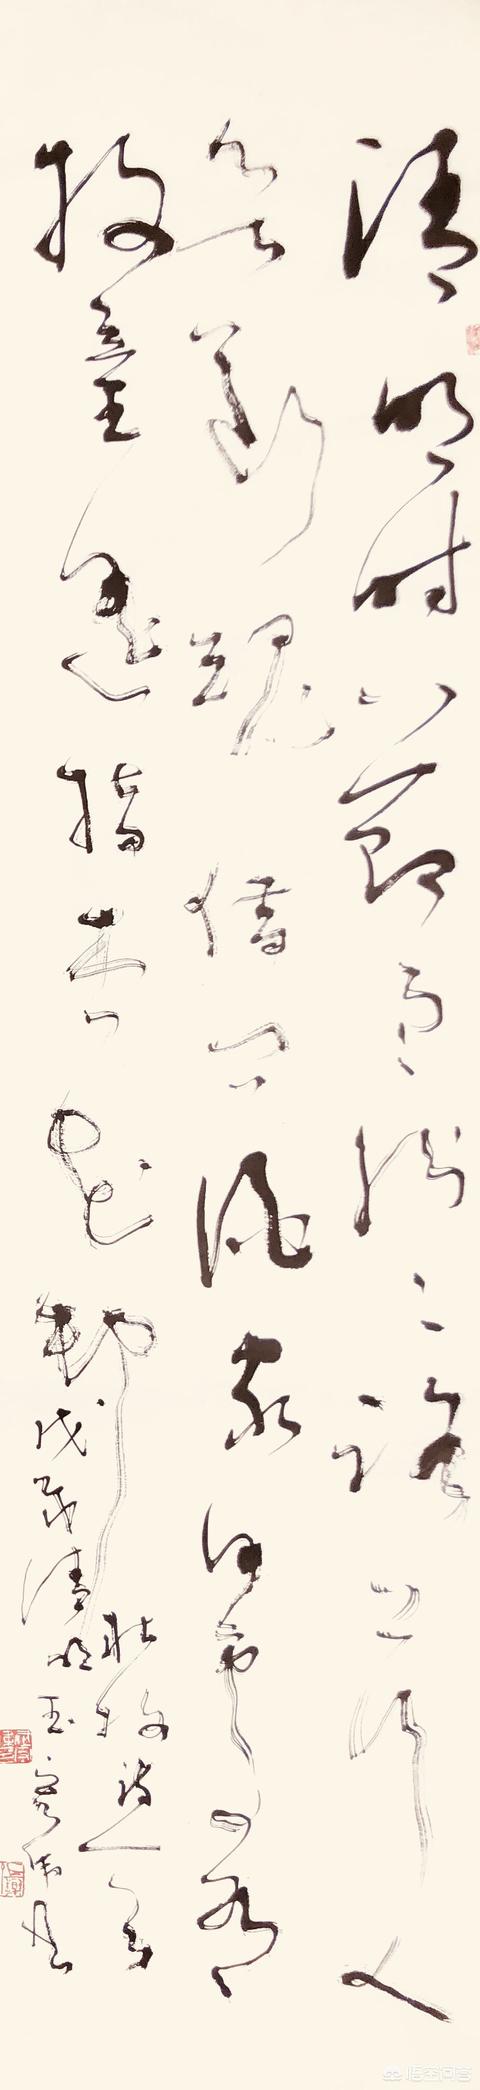 清明时节雨纷纷路上行人
欲断魂借问酒家何处有
牧童遥指杏花村
杜牧诗一首
戊戌清明
悟空问答